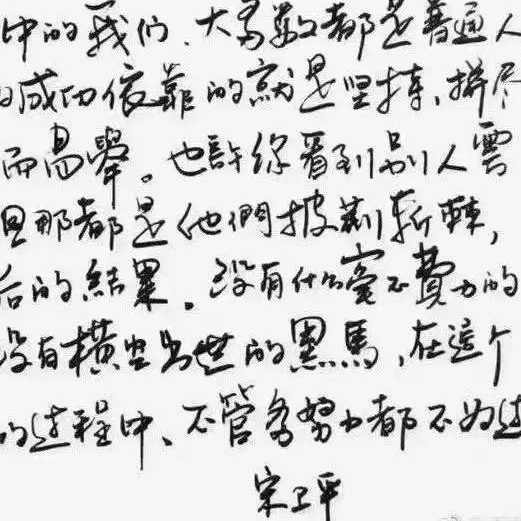 中的我们，大多数都是普通人
的成功依靠的就是坚持、拼尽
而易舉。也許你看到别人雲
但那都是他們披荆斬棘，
后的結果。没有什么毫不費力的
没有横空出世的黑馬，在這个
的过程中、不管多努力都不为过
宋卫平